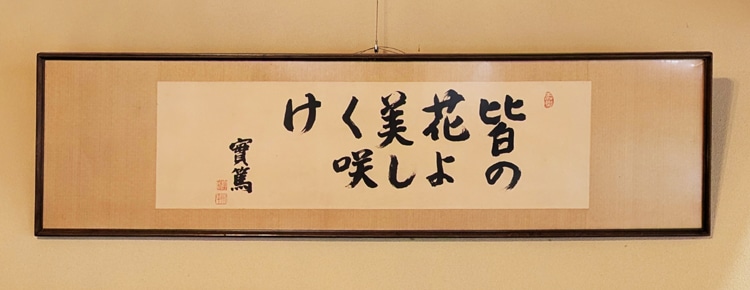 皆の
花よ
美し
く咲
け
實篤